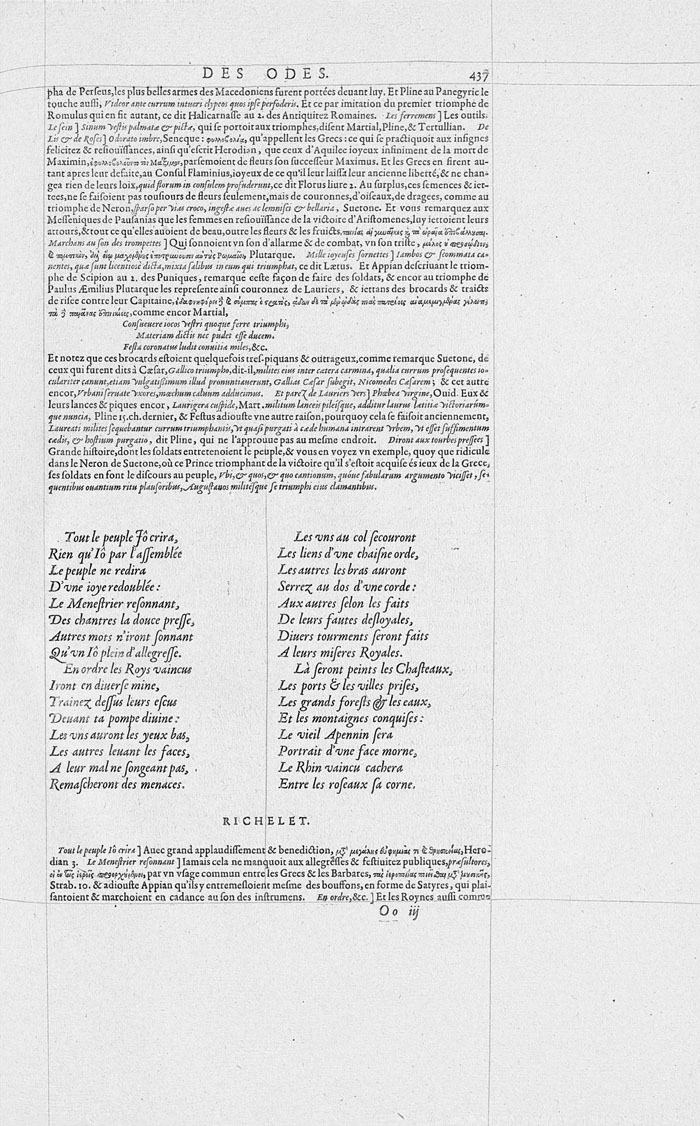 DES ODES. 437
pha de Perseus, les plus belles armes des Macedoniens furent portées deuant luy. Et Pline au Panegyric le
touche aussi, Videor ante currum intueri clypeos quos ipse perfoderis. Et ce par imitation du premier triomphe de
Romulus qui en fit autant, ce dit Halicarnasse au 2. des Antiquitez Romaines. Les ferremens ] Les outils.
Le sein ] Sinum vestis palmatæ & pictæ, qui se portoit aux triomphes, disent Martial, Pline, & Tertullian. De
Lis & de Roses ] Odorato imbre, Seneque : qu'appellent les Grecs : ce qui se practiquoit aux insignes
felicitez & resiouïssances, ainsi qu'escrit Herodian, que ceux d'Aquilee ioyeux infiniment de la mort de
Maximin, parsemoient de fleurs son successeur Maximus. Et les Grecs en firent au-
tant apres leur defaite, au Consul Flaminius, ioyeux de ce qu'il leur laissa leur ancienne liberté, & ne chan-
gea rien de leurs loix, quid florum in consulem profuderunt, ce dit Florus liure 2. Au surplus, ces semences & iet-
tees, ne se faisoient pas tousiours de fleurs seulement, mais de couronnes, d'oiseaux, de dragees, comme au
triomphe de Neron, sparso per vias croco, ingestæ aues ac lemnisci & bellaria, Suetone. Et vous remarquez aux
Messeniques de Pausanias que les femmes en resiouïssance de la victoire d'Aristomenes, luy iettoient leurs
attours, & tout ce qu'elles auoient de beau, outre les fleurs & les fruicts,
Marchans au son des trompettes ] Qui sonnoient vn son d'allarme & de combat, vn son triste,
Plutarque. Mille ioyeuses sornettes ] Iambos & scommata ca-
nentes, quæ sunt licentiosè dicta, mixta salibus in eum qui triumphat, ce dit Lætus. Et Appian descriuant le triom-
phe de Scipion au 2. des Puniques, remarque ceste façon de faire des soldats, & encor au triomphe de
Paulus Æmilius Plutarque les represente ainsi couronnez de Lauriers, & iettans des brocards & traicts
de risee contre leur Capitaine,
comme encor Martial,
Consueuere iocos vestri quoque ferre triumphi,
Materiam dictis nec pudet esse ducem.
Festa coronatus ludit conuitia miles, &c.
Et notez que ces brocards estoient quelquefois tres-piquans & outrageux, comme remarque Suetone, de
ceux qui furent dits à Cæsar, Gallico triumpho, dit-il, milites eius inter cætera carmina, qualia currum prosequentes io-
culariter canunt, etiam vulgatissimum illud pronuntiauerunt, Gallias Cæsar subegit, Nicomedes Cæsarem; & cet autre
encor, Vrbani seruate vxores, mœchum caluum adducimus. Et parez de Lauriers vers ] Phœbea virgine, Ouid. Eux &
leurs lances & piques encor, Laurigera cuspide, Mart. militum lanceis pilisque, additur laurus lætitiæ victoriarúm-
que nuncia, Pline 15. ch. dernier, & Festus adiouste vne autre raison, pourquoy cela se faisoit anciennement,
Laureati milites sequebantur currum triumphantis, vt quasi purgati à cæde humana intrarent vrbem, vt esset suffimentum
cædis, & hostium purgatio, dit Pline, qui ne l'approuue pas au mesme endroit. Diront aux tourbes pressees ]
Grande histoire, dont les soldats entretenoient le peuple, & vous en voyez vn exemple, quoy que ridicule
dans le Neron de Suetone, où ce Prince triomphant de la victoire qu'il s'estoit acquise és ieux de la Grece,
ses soldats en font le discours au peuple, Vbi, & quos, & quo cantionum, quóue fabularum argumento vicisset, se-
quentibus ouantium ritu plausoribus, Augustanos militésque se triumphi eius clamantibus.
Tout le peuple Iô crira,
Rien qu'Iô par l'assemblée
Le peuple ne redira
D'vne ioye redoublée :
Le Menestrier resonnant,
Des chantres la douce presse,
Autres mots n'iront sonnant
Qu'vn Iô plein d'allegresse.
En ordre les Roys vaincus
Iront en diuerse mine,
Trainez dessus leurs escus
Deuant ta pompe diuine :
Les vns auront les yeux bas,
Les autres leuant les faces,
A leur mal ne songeant pas,
Remascheront des menaces.
Les vns au col secouront
Les liens d'vne chaisne orde,
Les autres les bras auront
Serrez au dos d'vne corde :
Aux autres selon les faits
De leurs fautes desloyales,
Diuers tourments seront faits
A leurs miseres Royales.
Là seront peints les Chasteaux,
Les ports & les villes prises,
Les grands forests & les eaux,
Et les montaignes conquises :
Le vieil Apennin sera
Portrait d'vne face morne,
Le Rhin vaincu cachera
Entre les roseaux sa corne.
RICHELET.
Tout le peuple Iô crira ] Auec grand applaudissement & benediction, Hero-
dian 3. Le Menestrier resonnant ] Iamais cela ne manquoit aux allegresses & festiuitez publiques, præsultores,
par vn vsage commun entre les Grecs & les Barbares,
Strab. 10. & adiouste Appian qu'ils y entremesloient mesme des bouffons, en forme de Satyres, qui plai-
santoient & marchoient en cadance au son des instrumens. En ordre, &c. ] Et les Roynes aussi comme
Oo iij